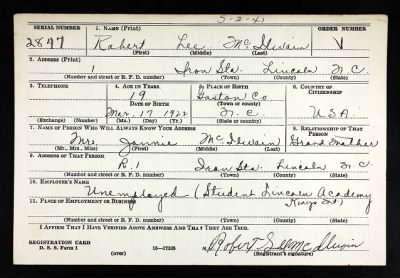 SERIAL NUMBER 1. NAME (Print) ORDER NUMBER
2847 Robert Lee McIlwain V
(First) (Middle) (Last)
2. ADDRESS (Print)
1 Iron Sta. Lincoln N.C.
(Number and street or R. F. D. number) (Town) (County) (State)
3. TELEPHONE 4. AGE IN YEARS 5. PLACE OF BIRTH 6. COUNTRY OF CITIZENSHIP
19 Gaston Co.
DATE OF BIRTH (Town or county)
Mar. 17 1922 N.C. U.S.A.
(Exchange) (Number) (Mo.) (Day) (Yr.) (State or country)
7. NAME OF PERSON WHO WILL ALWAYS KNOW YOUR ADDRESS 8. RELATIONSHIP OF THAT PERSON
Mrs. Jannie McIlwain Grand Mother
(Mr., Mrs., Miss) (First) (Middle) (Last)
9. ADDRESS OF THAT PERSON
R. 1 Iron Sta. Lincoln N.C.
(Number and street or R. F. D. number) (Town) (County) (State)
10. EMPLOYER'S NAME
Unemployed (Student Lincoln Academy
11. PLACE OF EMPLOYMENT OR BUSINESS Kings
(Number and street or R. F. D. number) (Town) (County) (State)
I AFFIRM THAT I HAVE VERIFIED ABOVE ANSWERS AND THAT THEY ARE TRUE.
REGISTRATION CARD
D. S. S. Form 1 16—17105 Robert Lee McIlwain
(Registrant's signature)